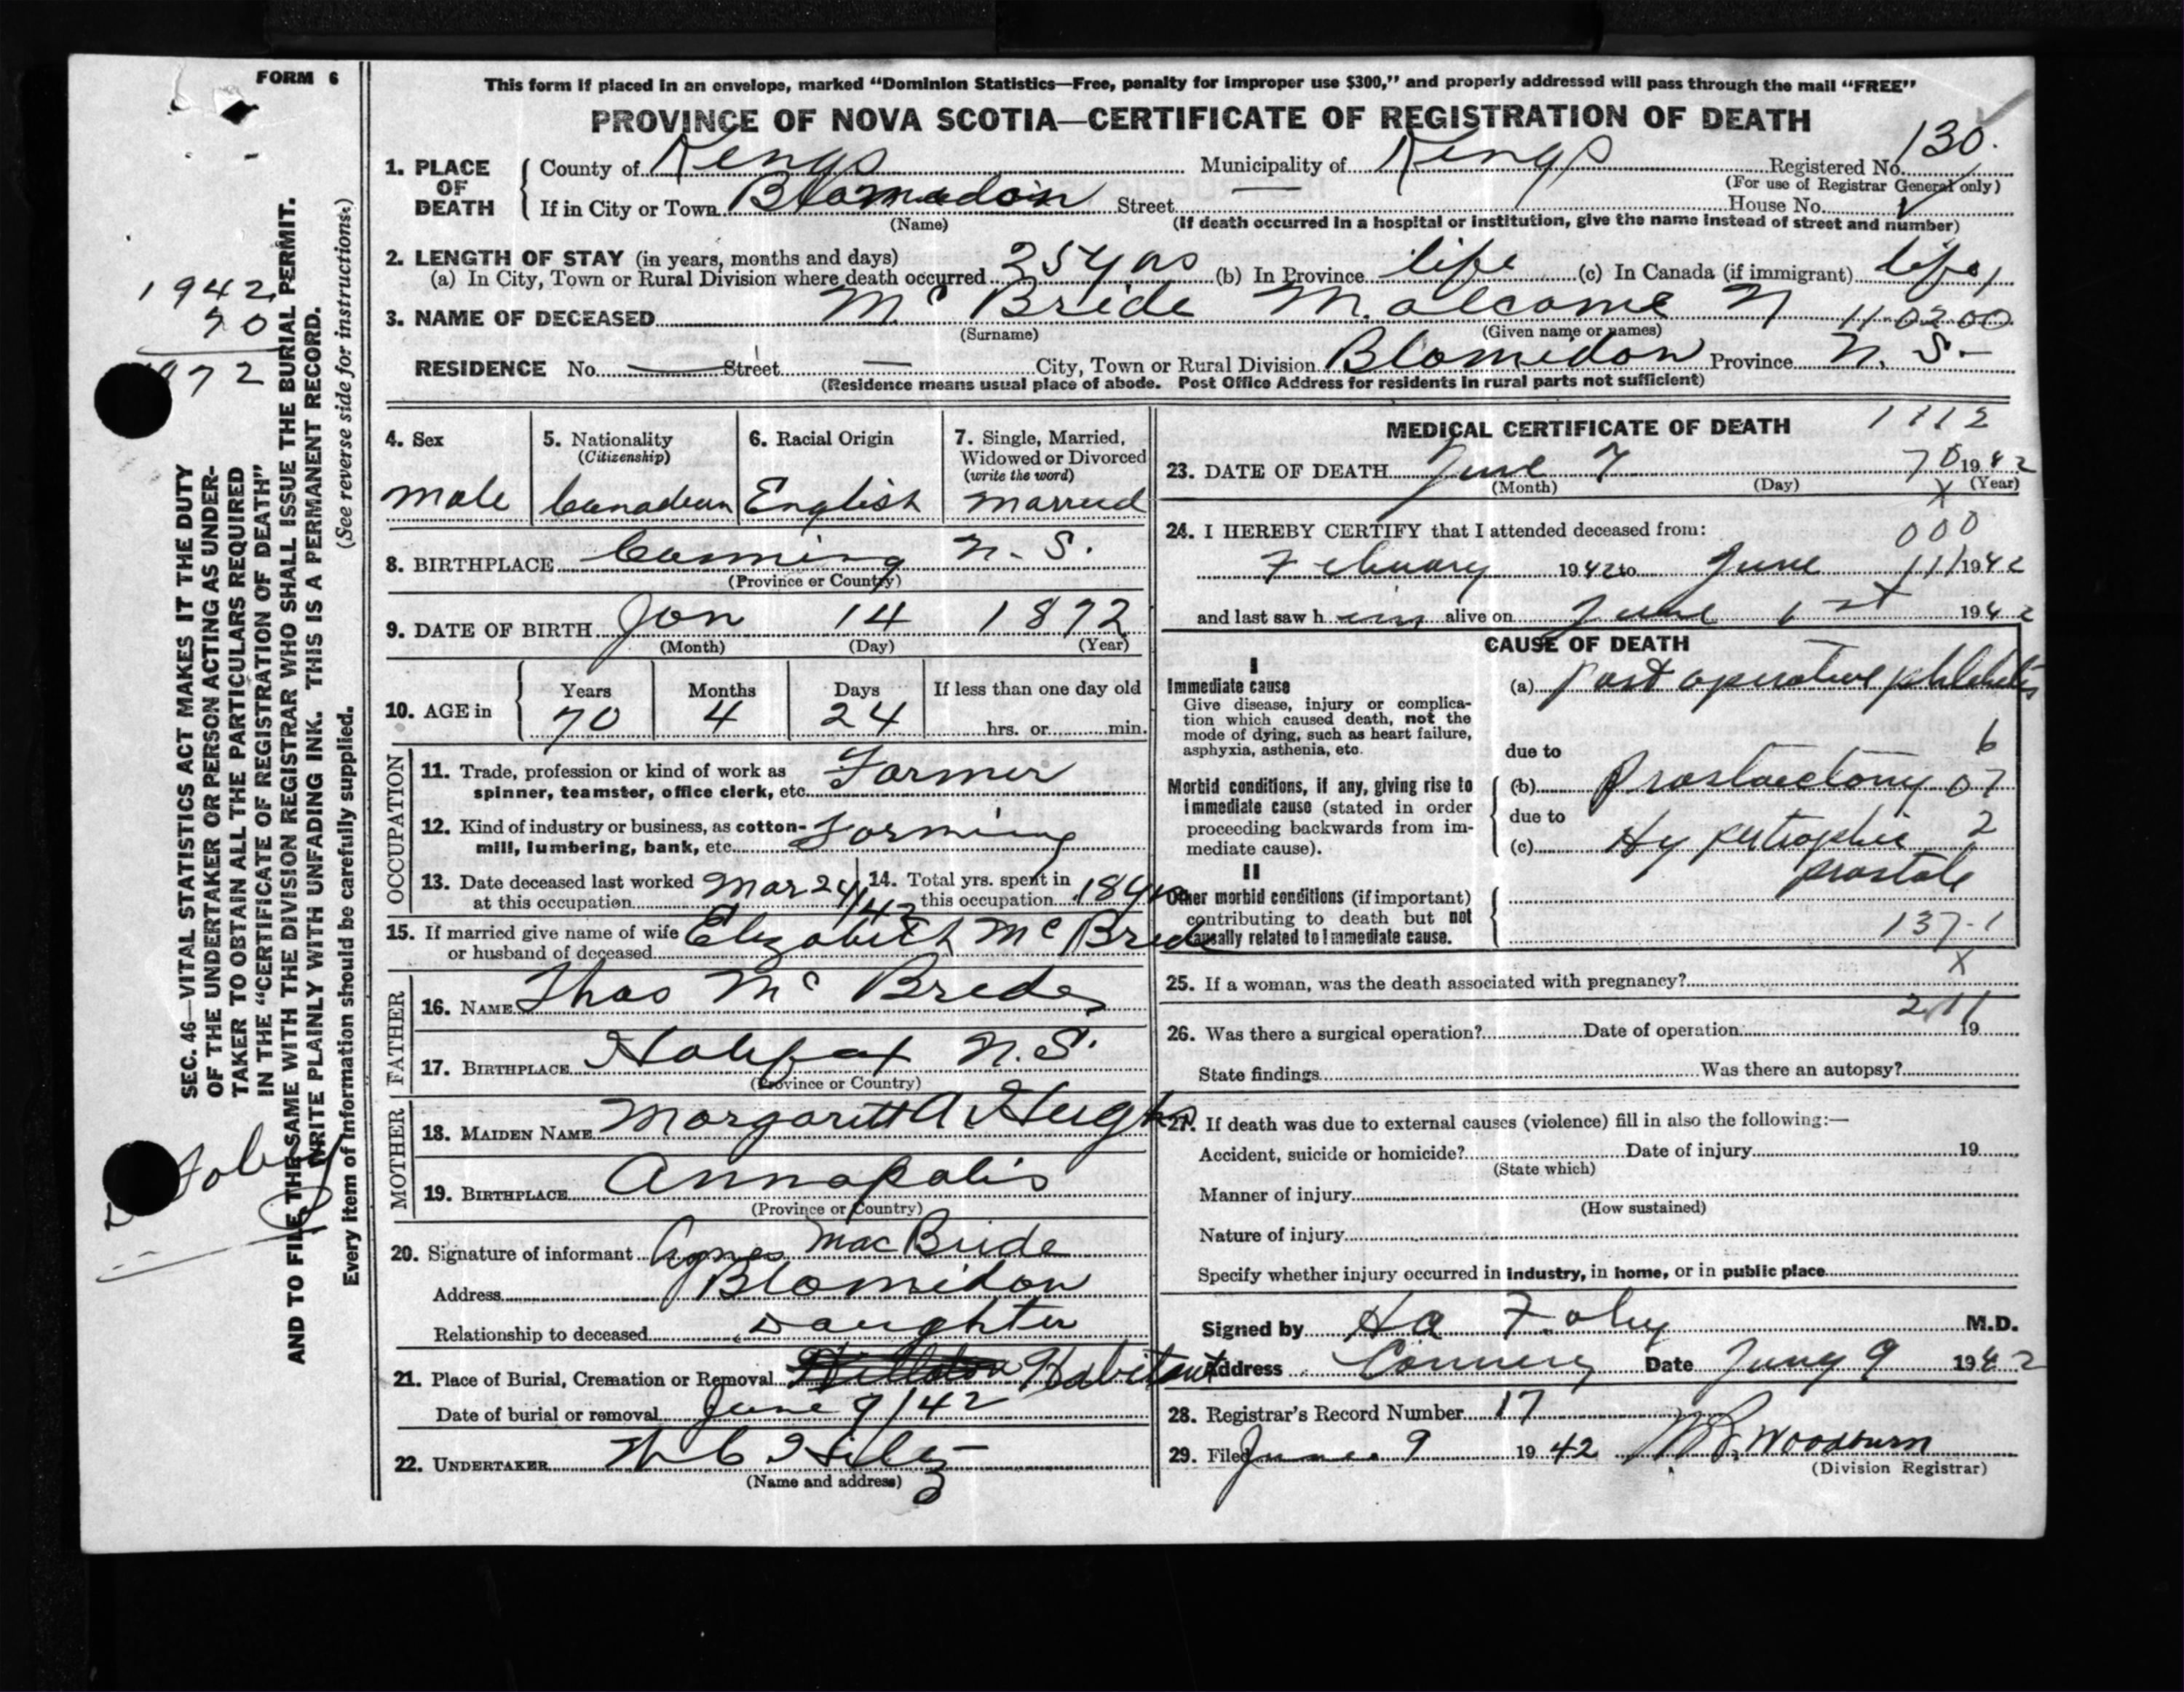 FORM 6
This form if placed in an envelope, marked “Dominion Statistics—Free, penalty for improper use $300,” and properly addressed will pass through the mail “FREE”
PROVINCE OF NOVA SCOTIA—CERTIFICATE OF REGISTRATION OF DEATH
1. PLACE OF DEATH
County of Kings Municipality of Kings Registered No. 130.
(For use of Registrar General only)
If in City or Town Blomadoin Street — House No.
(Name) (If death occurred in a hospital or institution, give the name instead of street and number)
2. LENGTH OF STAY (in years, months and days)
(a) In City, Town or Rural Division where death occurred 35 yrs (b) In Province life (c) In Canada (if immigrant) life
3. NAME OF DECEASED Mc Bride Malcome N 110200
(Surname) (Given name or names)
RESIDENCE No. — Street — City, Town or Rural Division Blomidon Province N. S—
(Residence means usual place of abode. Post Office Address for residents in rural parts not sufficient)
4. Sex
male
5. Nationality
(Citizenship)
Canadian
6. Racial Origin
English
7. Single, Married, Widowed or Divorced
(write the word)
married
8. BIRTHPLACE Canning N. S.
(Province or Country)
9. DATE OF BIRTH Jan 14 1872
(Month) (Day) (Year)
10. AGE in
Years Months Days If less than one day old
70 4 24 hrs. or min.
OCCUPATION
11. Trade, profession or kind of work as spinner, teamster, office clerk, etc. Farmer
12. Kind of industry or business, as cotton-mill, lumbering, bank, etc. Farming
13. Date deceased last worked at this occupation Mar 24/42
14. Total yrs. spent in this occupation
15. If married give name of wife or husband of deceased Elizabeth Mc Bride
FATHER
16. NAME Thos Mc Bride
17. BIRTHPLACE Halifax N.S.
(Province or Country)
MOTHER
18. MAIDEN NAME Margarett A
19. BIRTHPLACE Annapolis
(Province or Country)
20. Signature of informant Agnes MacBride
Address Blomidon
Relationship to deceased Daughter
21. Place of Burial, Cremation or Removal Habitant
Date of burial or removal June 9/42
22. UNDERTAKER
(Name and address)
MEDICAL CERTIFICATE OF DEATH 1112
23. DATE OF DEATH June 7 70 1942
(Month) (Day) (Year)
X
24. I HEREBY CERTIFY that I attended deceased from: 000
February 1942 to June 111 1942
and last saw him alive on June 1st 1942
CAUSE OF DEATH
I
Immediate cause
Give disease, injury or complication which caused death, not the mode of dying, such as heart failure, asphyxia, asthenia, etc.
(a) Post operative phlebitis
due to 6
Morbid conditions, if any, giving rise to immediate cause (stated in order proceeding backwards from immediate cause).
(b) Prostatectomy 07
due to
(c) Hypertrophic 2
prostate
II
Other morbid conditions (if important) contributing to death but not causally related to immediate cause.
137-1
25. If a woman, was the death associated with pregnancy? X
211
26. Was there a surgical operation? Date of operation 19
State findings Was there an autopsy?
27. If death was due to external causes (violence) fill in also the following:—
Accident, suicide or homicide? Date of injury 19
(State which)
Manner of injury
(How sustained)
Nature of injury
Specify whether injury occurred in industry, in home, or in public place
Signed by Ha Foley M.D.
Address Date 9 1942
28. Registrar's Record Number 17
29. Filed June 9 1942 Woodburn
(Division Registrar)
SEC. 46—VITAL STATISTICS ACT MAKES IT THE DUTY
OF THE UNDERTAKER OR PERSON ACTING AS UNDER-
TAKER TO OBTAIN ALL THE PARTICULARS REQUIRED
IN THE “CERTIFICATE OF REGISTRATION OF DEATH”
AND TO FILE THE SAME WITH THE DIVISION REGISTRAR WHO SHALL ISSUE THE BURIAL PERMIT.
WRITE PLAINLY WITH UNFADING INK. THIS IS A PERMANENT RECORD.
Every item of information should be carefully supplied. (See reverse side for instructions.)
1942
70
Foley